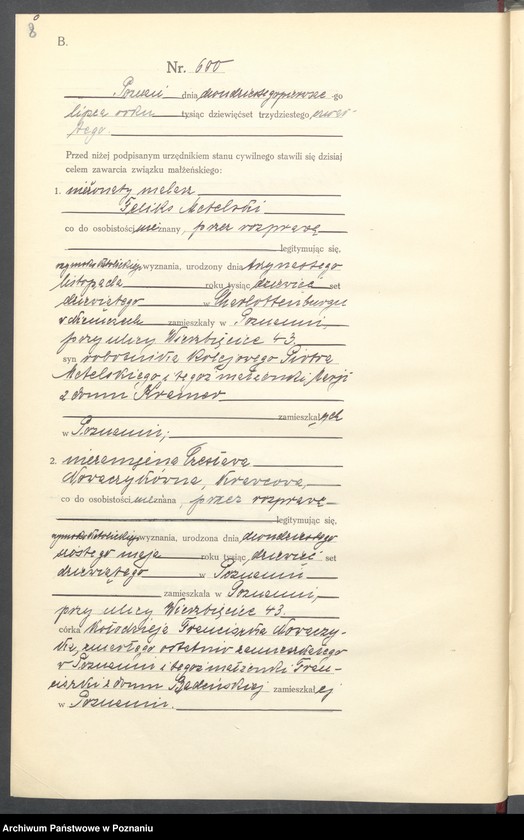 8
B.
Nr. 600
Poznań dnia dwudziestegopierwsze -go
lipca roku tysiąc dziewięćset trzydziestego czwar-
tego.
Przed niżej podpisanym urzędnikiem stanu cywilnego stawili się dzisiaj
celem zawarcia związku małżeńskiego:
1. nieżonaty malarz
Feliks Metelski
co do osobistości nieznany, przez rozprawę
legitymując się,
rzymsko katolickiego wyznania, urodzony dnia trzynastego
listopada roku tysiąc dziewięć set
dziewiątego w Charlottenburgu
w Niemczech zamieszkały w Poznaniu,
przy ulicy Wierzbięcice 43.
syn robotnika kolejowego Piotra
Metelskiego i tegoż małżonki Marji
z domu Kramer
zamieszkałych
w Poznaniu;
2. niezamężna Czesława
Nowaczykówna, krawcowa,
co do osobistości nieznana, przez rozprawę
legitymując się,
rzymsko katolickiego wyznania, urodzona dnia dwudziestego
szóstego maja roku tysiąc dziewięć set
dziewiątego w Poznaniu
zamieszkała w Poznaniu,
przy ulicy Wierzbięcice 43.
córka kołodzieja Franciszka Nowaczy-
ka, zmarłego ostatnio zamieszkałego
w Poznaniu i tegoż małżonki Fran-
ciszki z domu zamieszkałej
w Poznaniu.
Archiwum Państwowe w Poznaniu